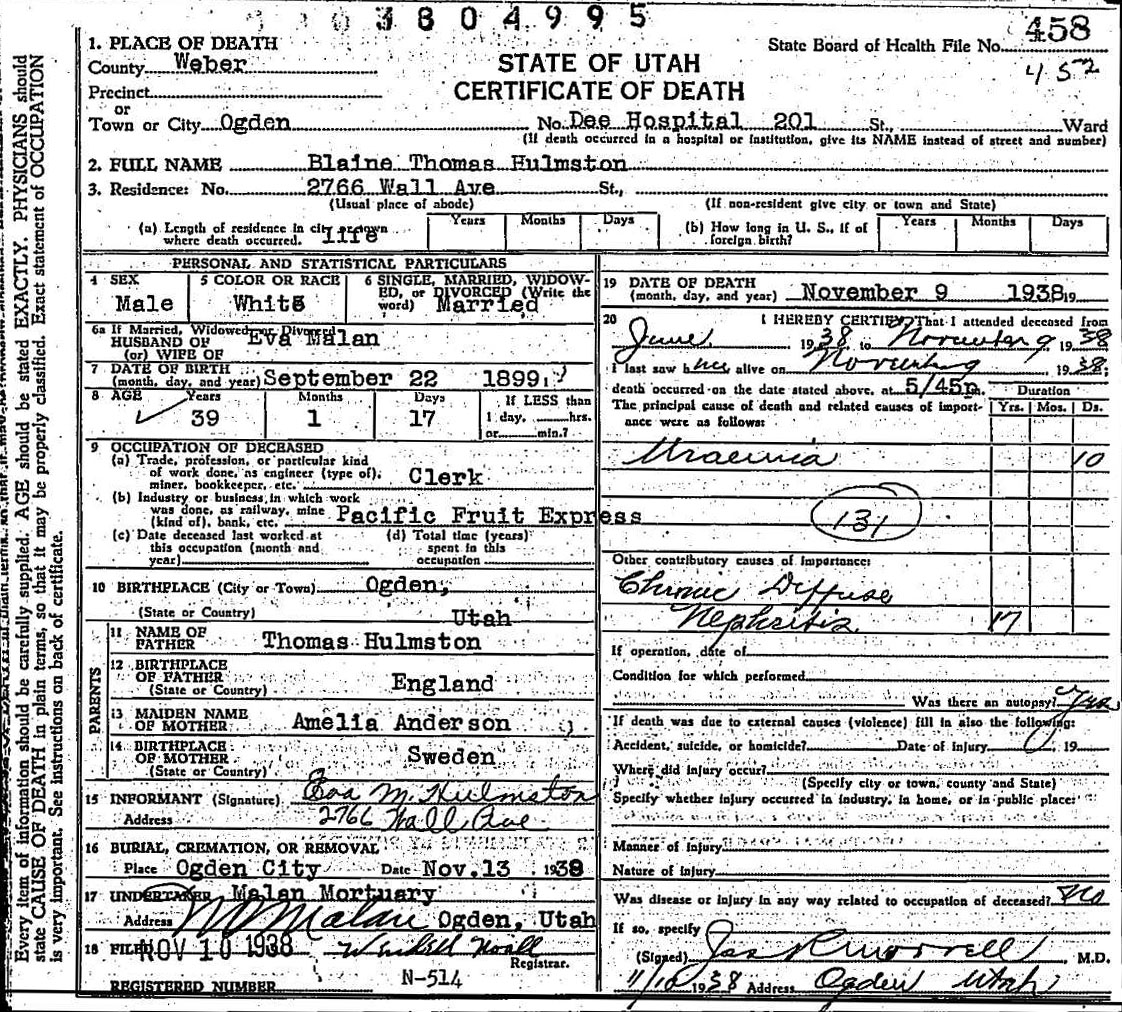 3804995
State Board of Health File No. 458
452
1. PLACE OF DEATH
County Weber
STATE OF UTAH
CERTIFICATE OF DEATH
Precinct
or
Town or City Ogden No. Dee Hospital 201 St., Ward
(If death occurred in a hospital or institution, give its NAME instead of street and number)
2. FULL NAME Blaine Thomas Hulmston
3. Residence: No. 2766 Wall Ave St.,
(Usual place of abode) (If non-resident give city or town and State)
(a) Length of residence in city or town where death occurred. life Years Months Days
(b) How long in U. S., if of foreign birth? Years Months Days
PERSONAL AND STATISTICAL PARTICULARS
4 SEX Male
5 COLOR OR RACE White
6 SINGLE, MARRIED, WIDOW-
ED, or DIVORCED (Write the
word) Married
6a If Married, Widowed, or Divorced
HUSBAND OF Eva Malan
(or) WIFE OF
7 DATE OF BIRTH
(month, day, and year) September 22 1899
8 AGE Years Months Days If LESS than
39 1 17 1 day, hrs.
or min.?
9 OCCUPATION OF DECEASED
(a) Trade, profession, or particular kind
of work done, as engineer (type of),
miner, bookkeeper, etc. Clerk
(b) Industry or business in which work
was done, as railway, mine
(kind of), bank, etc. Pacific Fruit Express
(c) Date deceased last worked at
this occupation (month and
year)
(d) Total time (years)
spent in this
occupation
10 BIRTHPLACE (City or Town) Ogden,
(State or Country) Utah
PARENTS
11 NAME OF
FATHER Thomas Hulmston
12 BIRTHPLACE
OF FATHER England
(State or Country)
13 MAIDEN NAME
OF MOTHER Amelia Anderson
14 BIRTHPLACE
OF MOTHER Sweden
(State or Country)
15 INFORMANT (Signature) Eva M. Hulmston
Address 2766 Wall Ave
16 BURIAL, CREMATION, OR REMOVAL
Place Ogden City Date Nov. 13 1938
17 UNDERTAKER Malan Mortuary
Address Malan Ogden, Utah
18 FILED NOV 10 1938
Registrar.
REGISTERED NUMBER N-514
19 DATE OF DEATH
(month, day, and year) November 9 1938 19
20 I HEREBY CERTIFY, That I attended deceased from
June 1938 to November 9, 1938
I last saw him alive on November 9 1938;
death occurred on the date stated above, at 5/45p.
Duration
The principal cause of death and related causes of import- Yrs. Mos. Ds.
ance were as follows:
Uraemia 10
131
Other contributory causes of importance:
Chronic Diffuse
Nephritis 17
If operation, date of
Condition for which performed
Was there an autopsy? Yes
If death was due to external causes (violence) fill in also the following:
Accident, suicide, or homicide? Date of injury 19
Where did injury occur?
(Specify city or town, county and State)
Specify whether injury occurred in industry, in home, or in public place:
Manner of Injury
Nature of Injury
Was disease or injury in any way related to occupation of deceased? No
If so, specify
(Signed) M.D.
11/10 1938 Address Ogden Utah
Every item of information should be carefully supplied. AGE should be stated EXACTLY. PHYSICIANS should
state CAUSE OF DEATH in plain terms, so that it may be properly classified. Exact statement of OCCUPATION
is very important. See instructions on back of certificate.